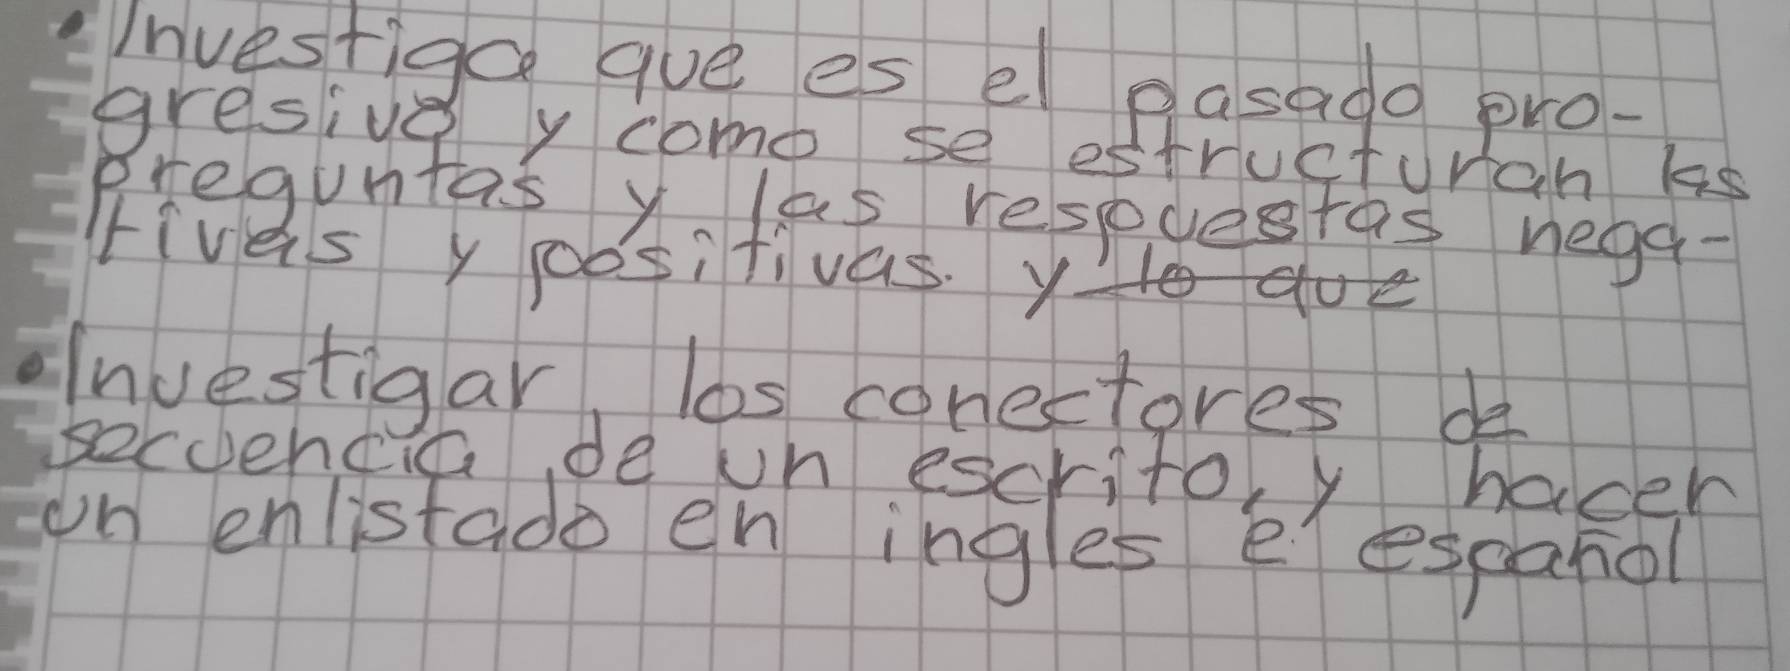 • Investiga que es el pasado pro-
gresivo y como se estructuran las
preguntas y las respuestas nega-
tivas y positivas. y lo que
• Investigar, los conectores de
secuencia, de un escrito, y hacer
un enlistado en ingles e español